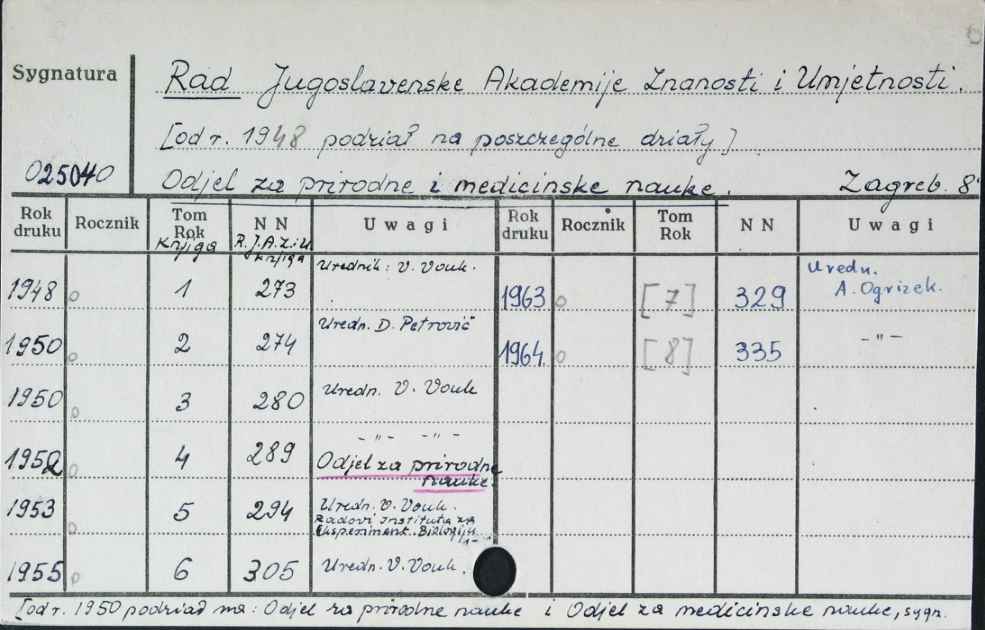 Sygnatura
025040
Rad Jugoslavenske Akademije Znanosti i Umjetnosti.
[od r. 1948 podział na poszczególne działy]
Odjel za prirodne i medicinske nauke. Zagreb. 8°
Rok druku Rocznik Tom Rok knjiga NN R.J.A.Z.i U. knjiga Uwagi Rok druku Rocznik Tom Rok NN Uwagi
1948 o 1 273 Urednik: V. Vouk. 1963 o [7] 329 Uredn. A. Ogrizek.
1950 o 2 274 Uredn. D. Petrović 1964 o [8] 335 -"-
1950 o 3 280 Uredn. V. Vouk
1952 o 4 289 -"- -"- Odjel za prirodne nauke.
1953 o 5 294 Uredn. V. Vouk. Radovi Instituta za Eksperiment. Biologiju
1955 o 6 305 Uredn. V. Vouk.
[od r. 1950 podział ma: Odjel za prirodne nauke i Odjel za medicinske nauke, sygn.